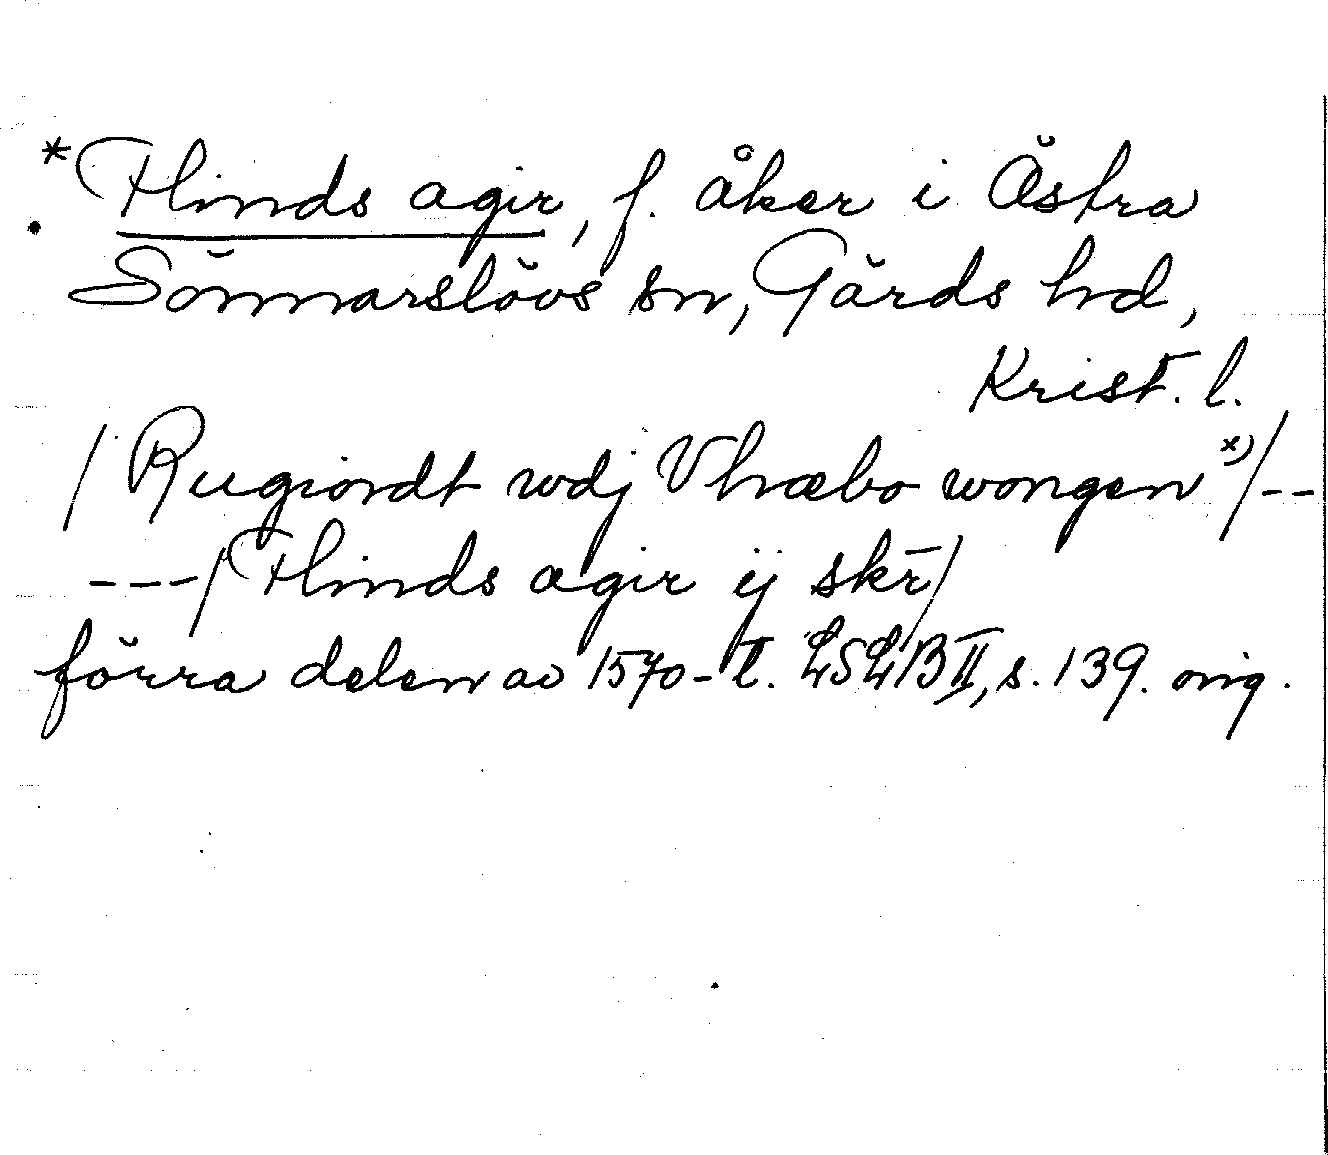 *Hinds agir, f. åker i Östra
Sönnarslövs sn, Gärds hd,
Krist. l.
/Rugiordt wdj Vhræbo wongen *)/--
---/Hinds agir ij skr̄/
förra delen av 1570-t. LSLB II, s. 139. orig.